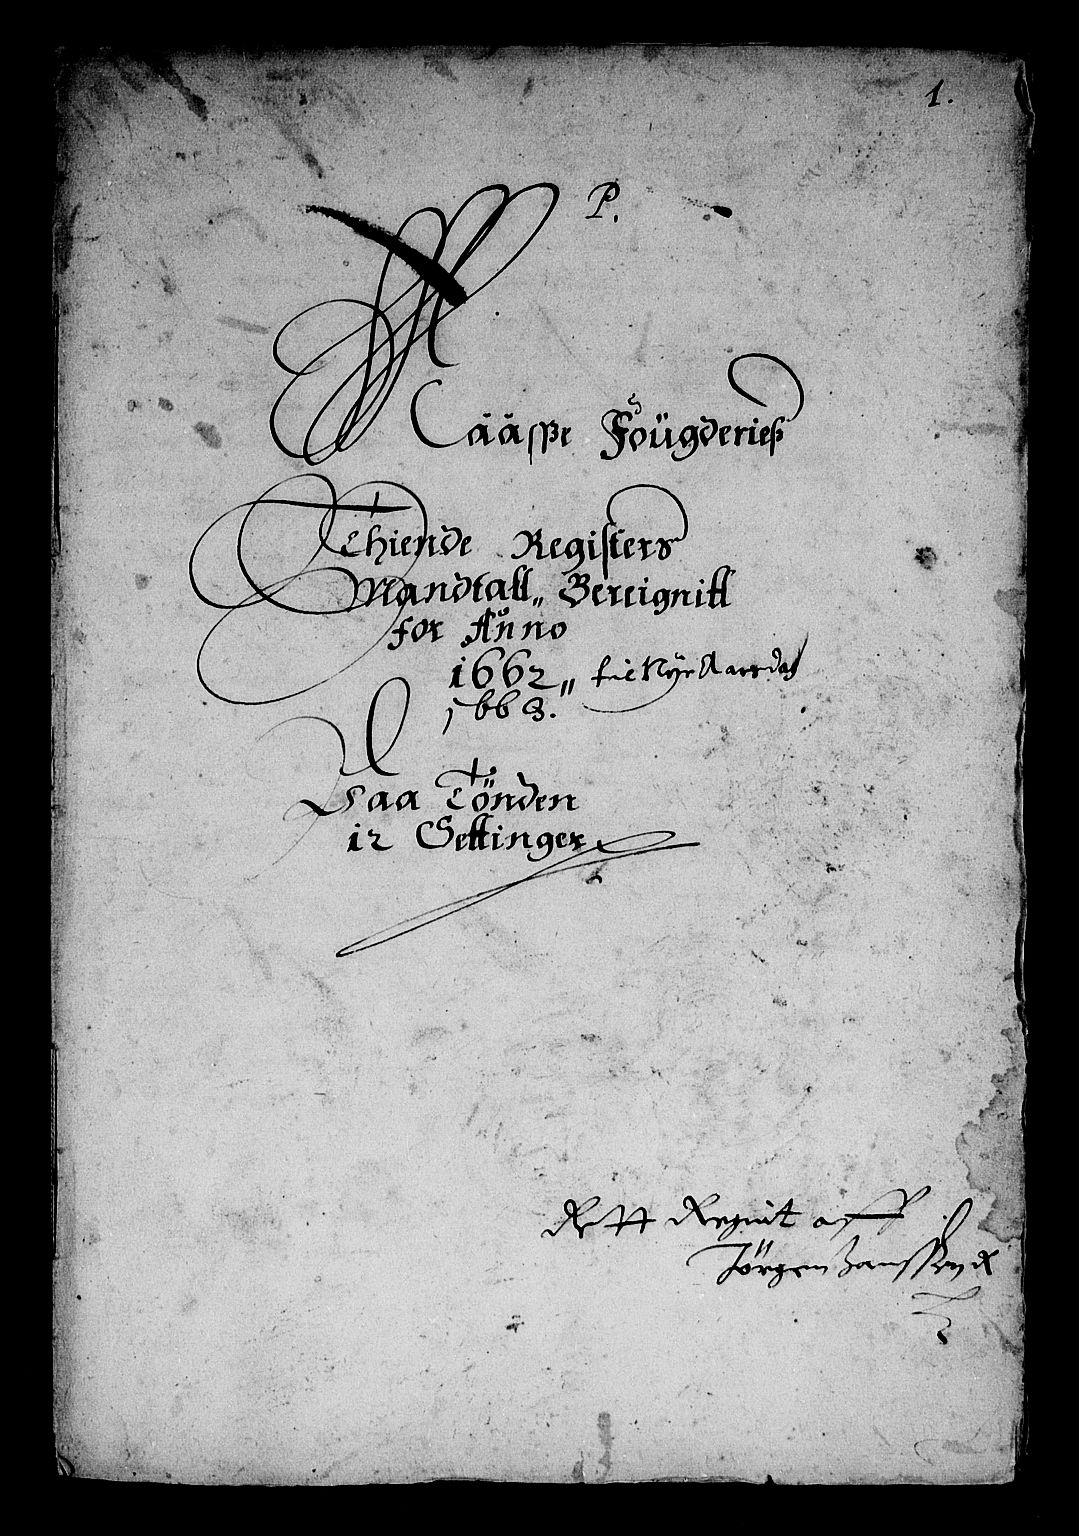 1.
P.
Raaspe Foügderies
Thiende Registers
Mandtall„ Bereignitt
for Anno
1662„ til Nyr Aarsdag
1663.
Paa Tönden
12 Settinger
Rett Regnit aff
Jörgen Janssen